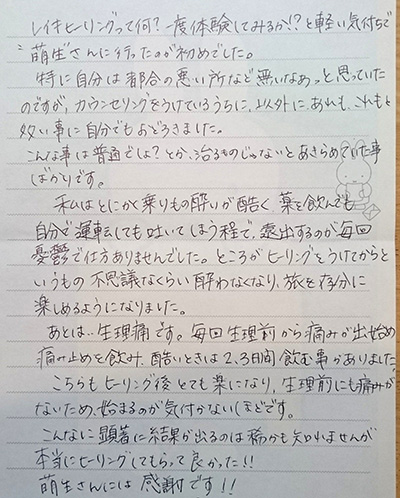 レイキヒーリングって何？一度体験してみるか!?と軽い気付ちで
萌生さんに行ったのが初めでした。
特に自分は都合の悪い所など無いなあっと思っていた
のですが、カウンセリングをうけているうちに、以外にあれも、これもと
多い事に自分でもおどろきました。
こんな事は普通でしょ？とか、治るものじゃないとあきらめていた事
ばかりです。
私はとにかく乗りもの酔いが酷く、薬を飲んでも
自分で運転しても吐いてしまう程で、遠出するのが毎回
憂鬱で仕方ありませんでした。ところがヒーリングをうけてからと
いうもの不思議なくらい酔わなくなり、旅を存分に
楽しめるようになりました。
あとは..生理痛です。毎回生理前から痛みが出始め
痛み止めを飲み、酷いときは2、3日間飲む事がありました。
こちらもヒーリング後とても楽になり、生理前にも痛みが
ないため、始まるのが気付かないほどです。
こんなに顕著に結果が出るのは稀かも知れませんが
本当にヒーリングしてもらって良かった!!
萌生さんには感謝です!!